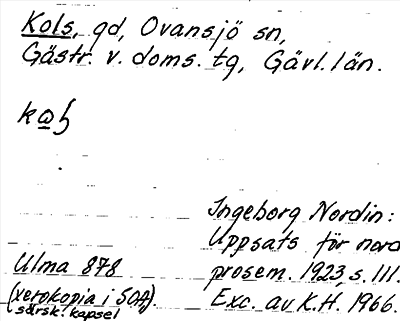 Kols, gd, Ovansjö sn,
Gästr. v. doms. tg, Gävl. län.
Ingeborg Nordin:
Uppsats för nord
prosem. 1923, s. III.
Ulma 878
(xerokopia i SOA).
särsk. kapsel
Exc. av K.H. 1966.